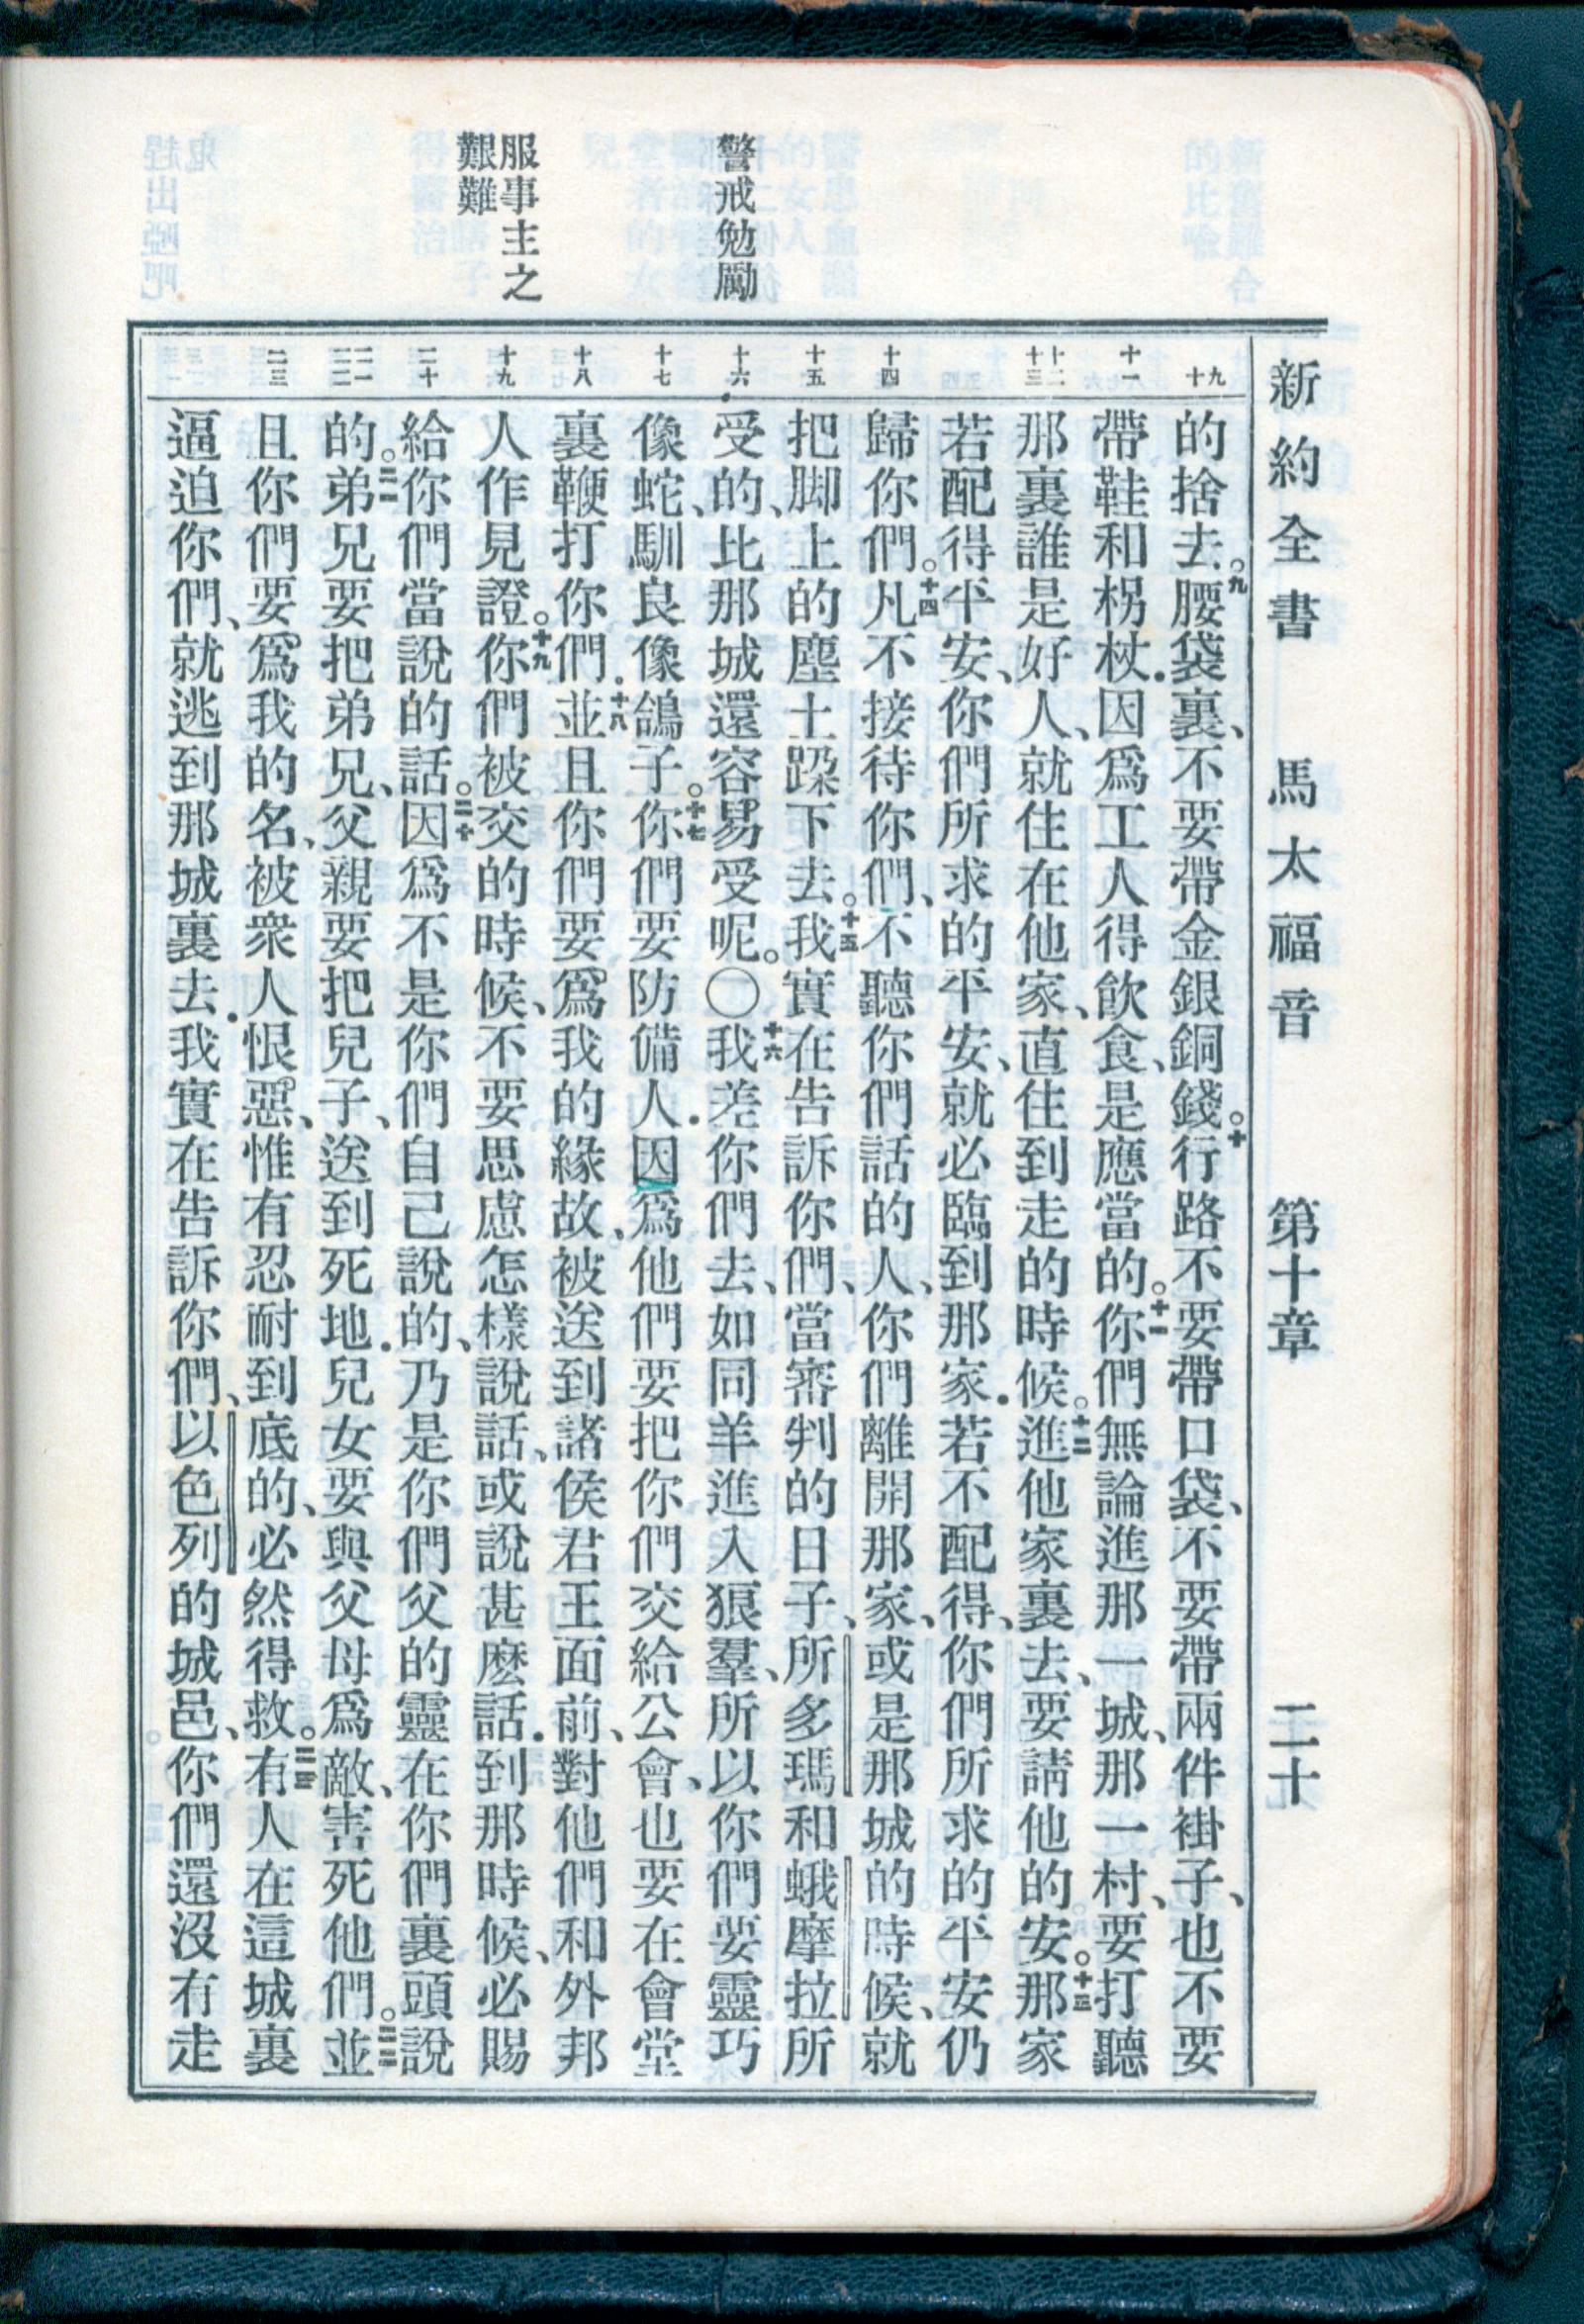 新約全書 馬太福音 第十章 二十
警戒勉勵
服事主之
艱難
九 十
十一
十二 十三
十四
十五
十六
十七
十八
十九
二十
二一 二二
二三
的捨去。九腰袋裏、不要帶金銀銅錢。十行路不要帶口袋、不要帶兩件褂子、也不要
帶鞋和柺杖．因爲工人得飲食、是應當的。十一你們無論進那一城、那一村、要打聽
那裏誰是好人、就住在他家、直住到走的時候。十二進他家裏去、要請他的安。十三那家
若配得平安、你們所求的平安、就必臨到那家．若不配得、你們所求的平安仍
歸你們。十四凡不接待你們、不聽你們話的人、你們離開那家、或是那城的時候、就
把脚上的塵土跺下去。十五我實在告訴你們、當審判的日子、所多瑪和蛾摩拉所
受的、比那城還容易受呢。〇十六我差你們去、如同羊進入狼羣、所以你們要靈巧
像蛇、馴良像鴿子。十七你們要防備人．因爲他們要把你們交給公會、也要在會堂
裏鞭打你們．十八並且你們要爲我的緣故、被送到諸侯君王面前、對他們和外邦
人作見證。十九你們被交的時候、不要思慮怎樣說話、或說甚麽話．到那時候、必賜
給你們當說的話。二十因爲不是你們自己說的、乃是你們父的靈在你們裏頭說
的。二一弟兄要把弟兄、父親要把兒子、送到死地．兒女要與父母爲敵、害死他們。二二並
且你們要爲我的名、被衆人恨惡、惟有忍耐到底的、必然得救。二三有人在這城裏
逼迫你們、就逃到那城裏去．我實在告訴你們、以色列的城邑、你們還沒有走